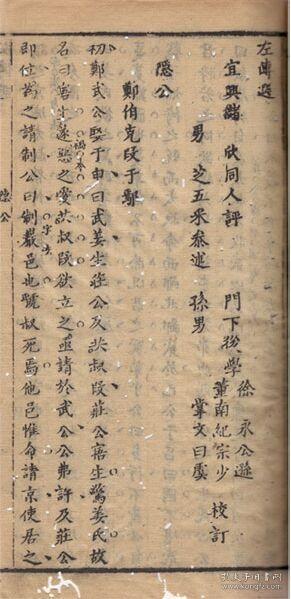 左傳選
宜興儲欣同人評 門下後學徐永 董南紀宗少 校訂
男芝五采參述 孫男掌文曰虞
隱公
鄭伯克段于鄢
初鄭武公娶于申曰武姜生莊公及共叔段莊公寤生驚姜氏故
名曰寤生遂惡之愛共叔段欲立之亟請於武公公弗許及莊公
禍本
即位為之請制公曰制巖邑也虢叔死焉他邑惟命請京使居之
字法
隱公